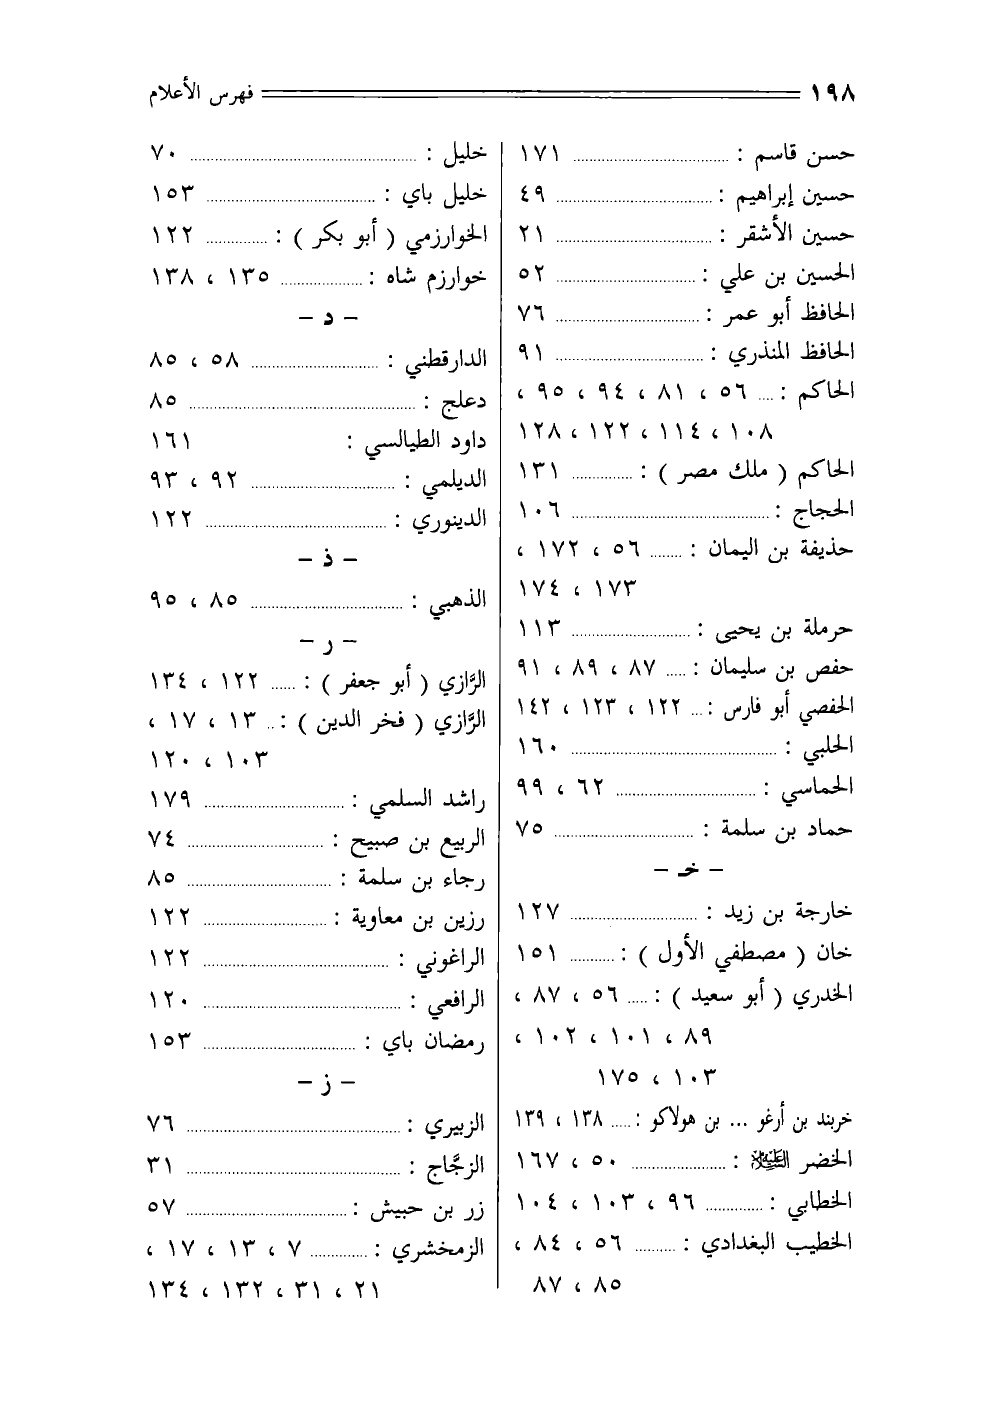 ١٩٨ فهرس الأعلام
حسن قاسم : ........ ١٧١
حسين إبراهيم : ........ ٤٩
حسين الأشقر : ........ ٢١
الحسين بن علي : ........ ٥٢
الحافظ أبو عمر : ........ ٧٦
الحافظ المنذري : ........ ٩١
الحاكم : .... ٥٦ ، ٨١ ، ٩٤ ، ٩٥ ،
١٠٨ ، ١١٤ ، ١٢٢ ، ١٢٨
الحاكم ( ملك مصر ) : ........ ١٣١
الحجاج : ........ ١٠٦
حذيفة بن اليمان : ........ ٥٦ ، ١٧٢ ،
١٧٣ ، ١٧٤
حرملة بن يحيى : ........ ١١٣
حفص بن سليمان : ..... ٨٧ ، ٨٩ ، ٩١
الحفصي أبو فارس : ... ١٢٢ ، ١٢٣ ، ١٤٢
الحلبي : ........ ١٦٠
الحماسي : ........ ٦٢ ، ٩٩
حماد بن سلمة : ........ ٧٥
– خـ –
خارجة بن زيد : ........ ١٢٧
خان ( مصطفي الأول ) : ........ ١٥١
الخدري ( أبو سعيد ) : ..... ٥٦ ، ٨٧ ،
٨٩ ، ١٠١ ، ١٠٢ ،
١٠٣ ، ١٧٥
خربند بن أرغو ... بن هولاكو : ..... ١٣٨ ، ١٣٩
الخضر عليه السلام : ........ ٥٠ ، ١٦٧
الخطابي : ........ ٩٦ ، ١٠٣ ، ١٠٤
الخطيب البغدادي : ........ ٥٦ ، ٨٤ ،
٨٥ ، ٨٧
خليل : ........ ٧٠
خليل باي : ........ ١٥٣
الخوارزمي ( أبو بكر ) : ........ ١٢٢
خوارزم شاه : ........ ١٣٥ ، ١٣٨
– د –
الدارقطني : ........ ٥٨ ، ٨٥
دعلج : ........ ٨٥
داود الطيالسي : ١٦١
الديلمي : ........ ٩٢ ، ٩٣
الدينوري : ........ ١٢٢
– ذ –
الذهبي : ........ ٨٥ ، ٩٥
– ر –
الرَّازي ( أبو جعفر ) : ...... ١٢٢ ، ١٣٤
الرَّازي ( فخر الدين ) : .. ١٣ ، ١٧ ،
١٠٣ ، ١٢٠
راشد السلمي : ........ ١٧٩
الربيع بن صبيح : ........ ٧٤
رجاء بن سلمة : ........ ٨٥
رزين بن معاوية : ........ ١٢٢
الراغوني : ........ ١٢٢
الرافعي : ........ ١٢٠
رمضان باي : ........ ١٥٣
– ز –
الزبيري : ........ ٧٦
الزجَّاج : ........ ٣١
زر بن حبيش : ........ ٥٧
الزمخشري : ........ ٧ ، ١٣ ، ١٧ ،
٢١ ، ٣١ ، ١٣٢ ، ١٣٤